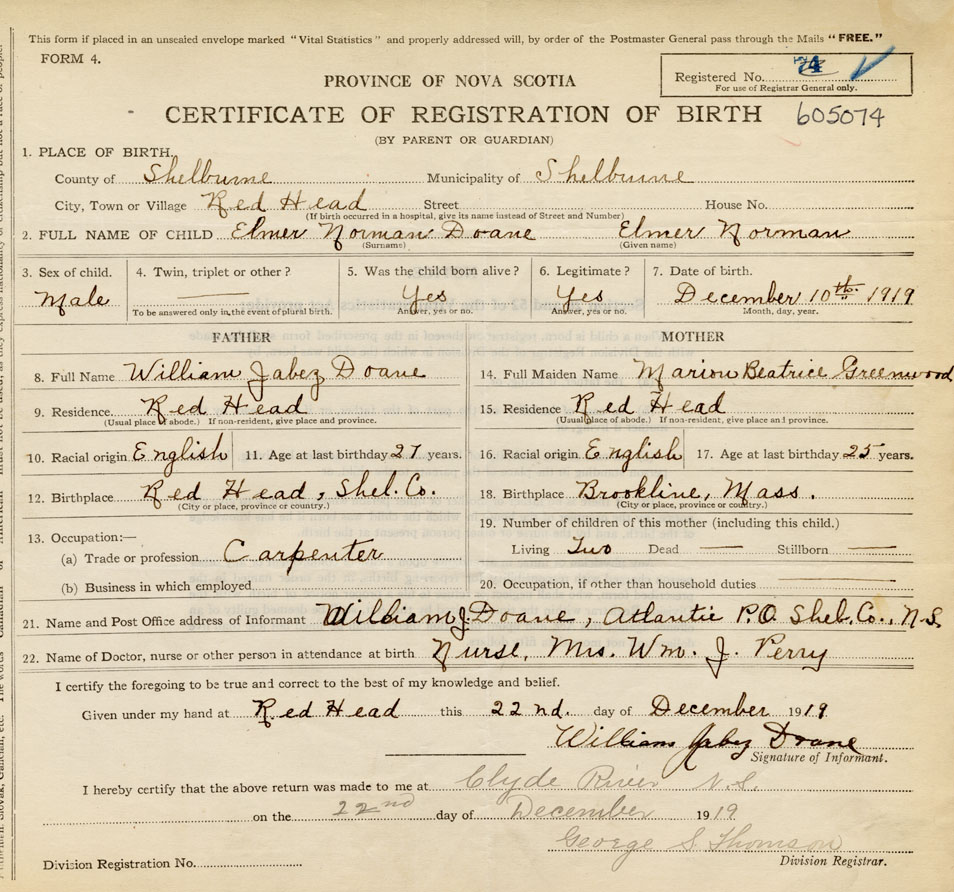 This form if placed in an unsealed envelope marked "Vital Statistics" and properly addressed will, by order of the Postmaster General pass through the Mails "FREE."
FORM 4.
Registered No. 74
For use of Registrar General only.
PROVINCE OF NOVA SCOTIA
CERTIFICATE OF REGISTRATION OF BIRTH 605074
(BY PARENT OR GUARDIAN)
1. PLACE OF BIRTH.
County of Shelburne Municipality of Shelburne
City, Town or Village Red Head Street House No.
(If birth occurred in a hospital, give its name instead of Street and Number)
2. FULL NAME OF CHILD Elmer Norman Doane Elmer Norman
(Surname) (Given name)
3. Sex of child. 4. Twin, triplet or other? 5. Was the child born alive? 6. Legitimate? 7. Date of birth.
Male Yes Yes December 10th 1919
To be answered only in the event of plural birth. Answer, yes or no. Answer, yes or no. Month, day, year.
FATHER MOTHER
8. Full Name William Jabez Doane 14. Full Maiden Name Marion Beatrice Greenwood
9. Residence. Red Head 15. Residence Red Head
(Usual place of abode.) If non-resident, give place and province. (Usual place of abode.) If non-resident, give place and province.
10. Racial origin English 11. Age at last birthday 27 years. 16. Racial origin English 17. Age at last birthday 25 years.
12. Birthplace Red Head, Shel. Co. 18. Birthplace Brookline, Mass.
(City or place, province or country.) (City or place, province or country.)
13. Occupation:— 19. Number of children of this mother (including this child.)
(a) Trade or profession Carpenter Living Two Dead — Stillborn —
(b) Business in which employed 20. Occupation, if other than household duties
21. Name and Post Office address of Informant William J. Doane, Atlantic P.O. Shel. Co., N.S.
22. Name of Doctor, nurse or other person in attendance at birth Nurse, Mrs. Wm. J. Perry
I certify the foregoing to be true and correct to the best of my knowledge and belief.
Given under my hand at Red Head this 22nd. day of December 1919
William Jabez Doane
Signature of Informant.
I hereby certify that the above return was made to me at Clyde River N.S.
on the 22nd day of December 1919
George S. Thomson
Division Registration No. Division Registrar.